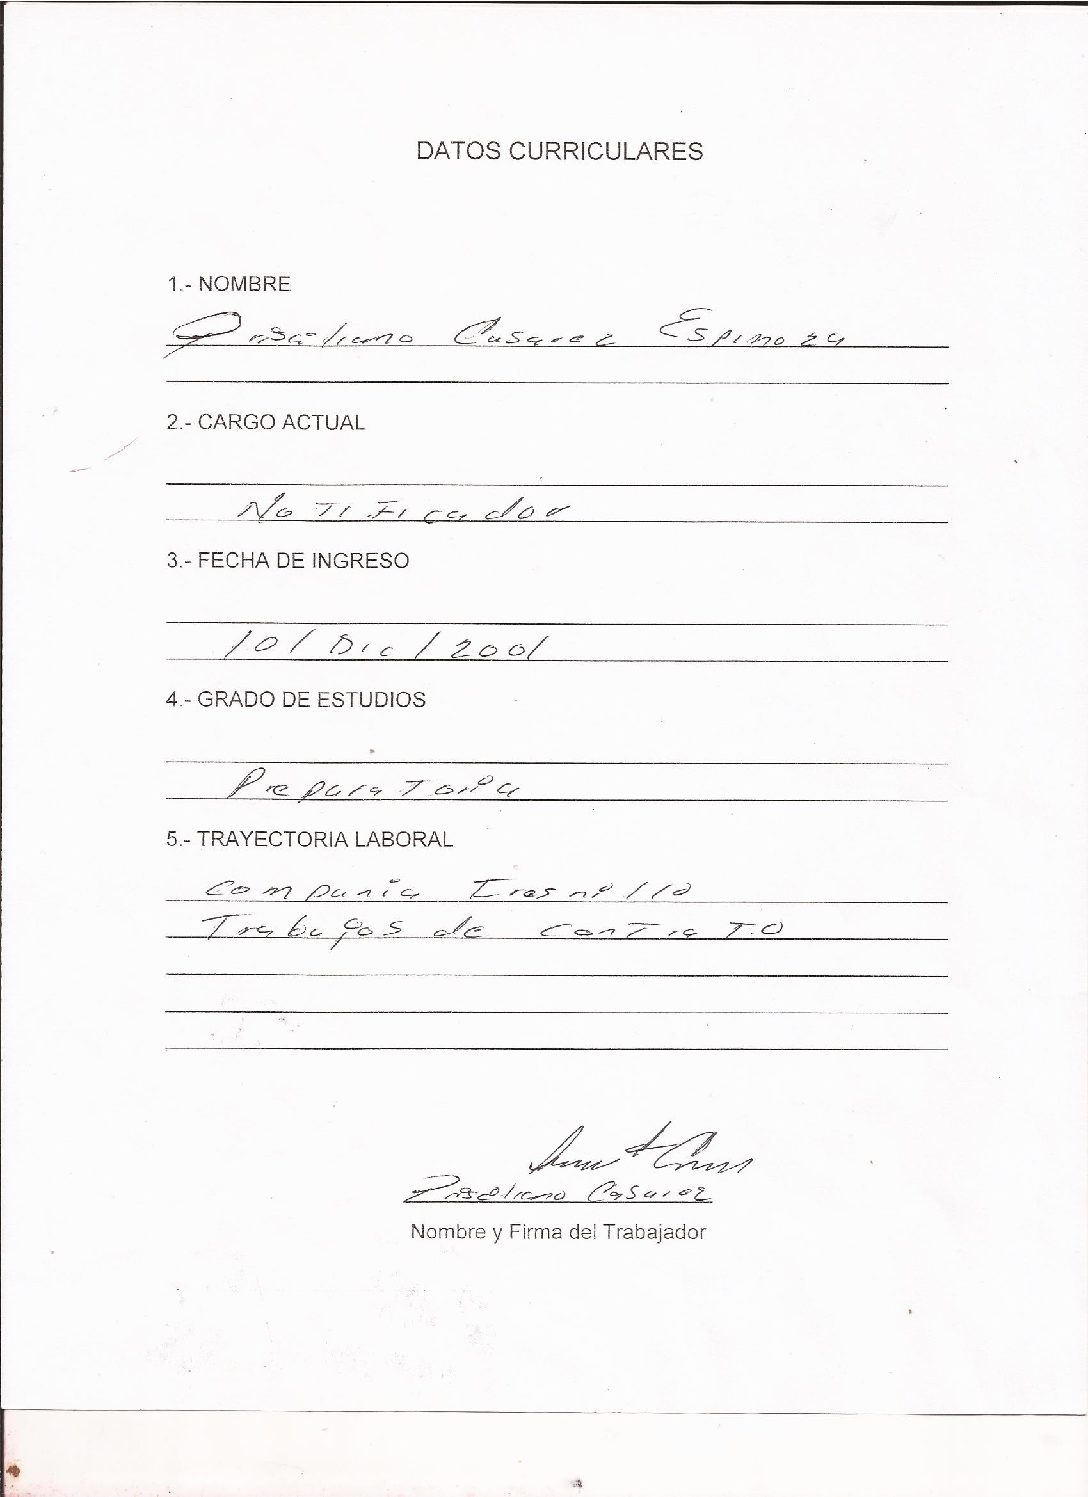 DATOS CURRICULARES
1.- NOMBRE
Casarez Espinoza
2.- CARGO ACTUAL
Notificador
3.- FECHA DE INGRESO
10/Dic/2001
4.- GRADO DE ESTUDIOS
Preparatoria
5.- TRAYECTORIA LABORAL
Compania Fresnillo
Trabajos de contrato
Casarez
Nombre y Firma del Trabajador